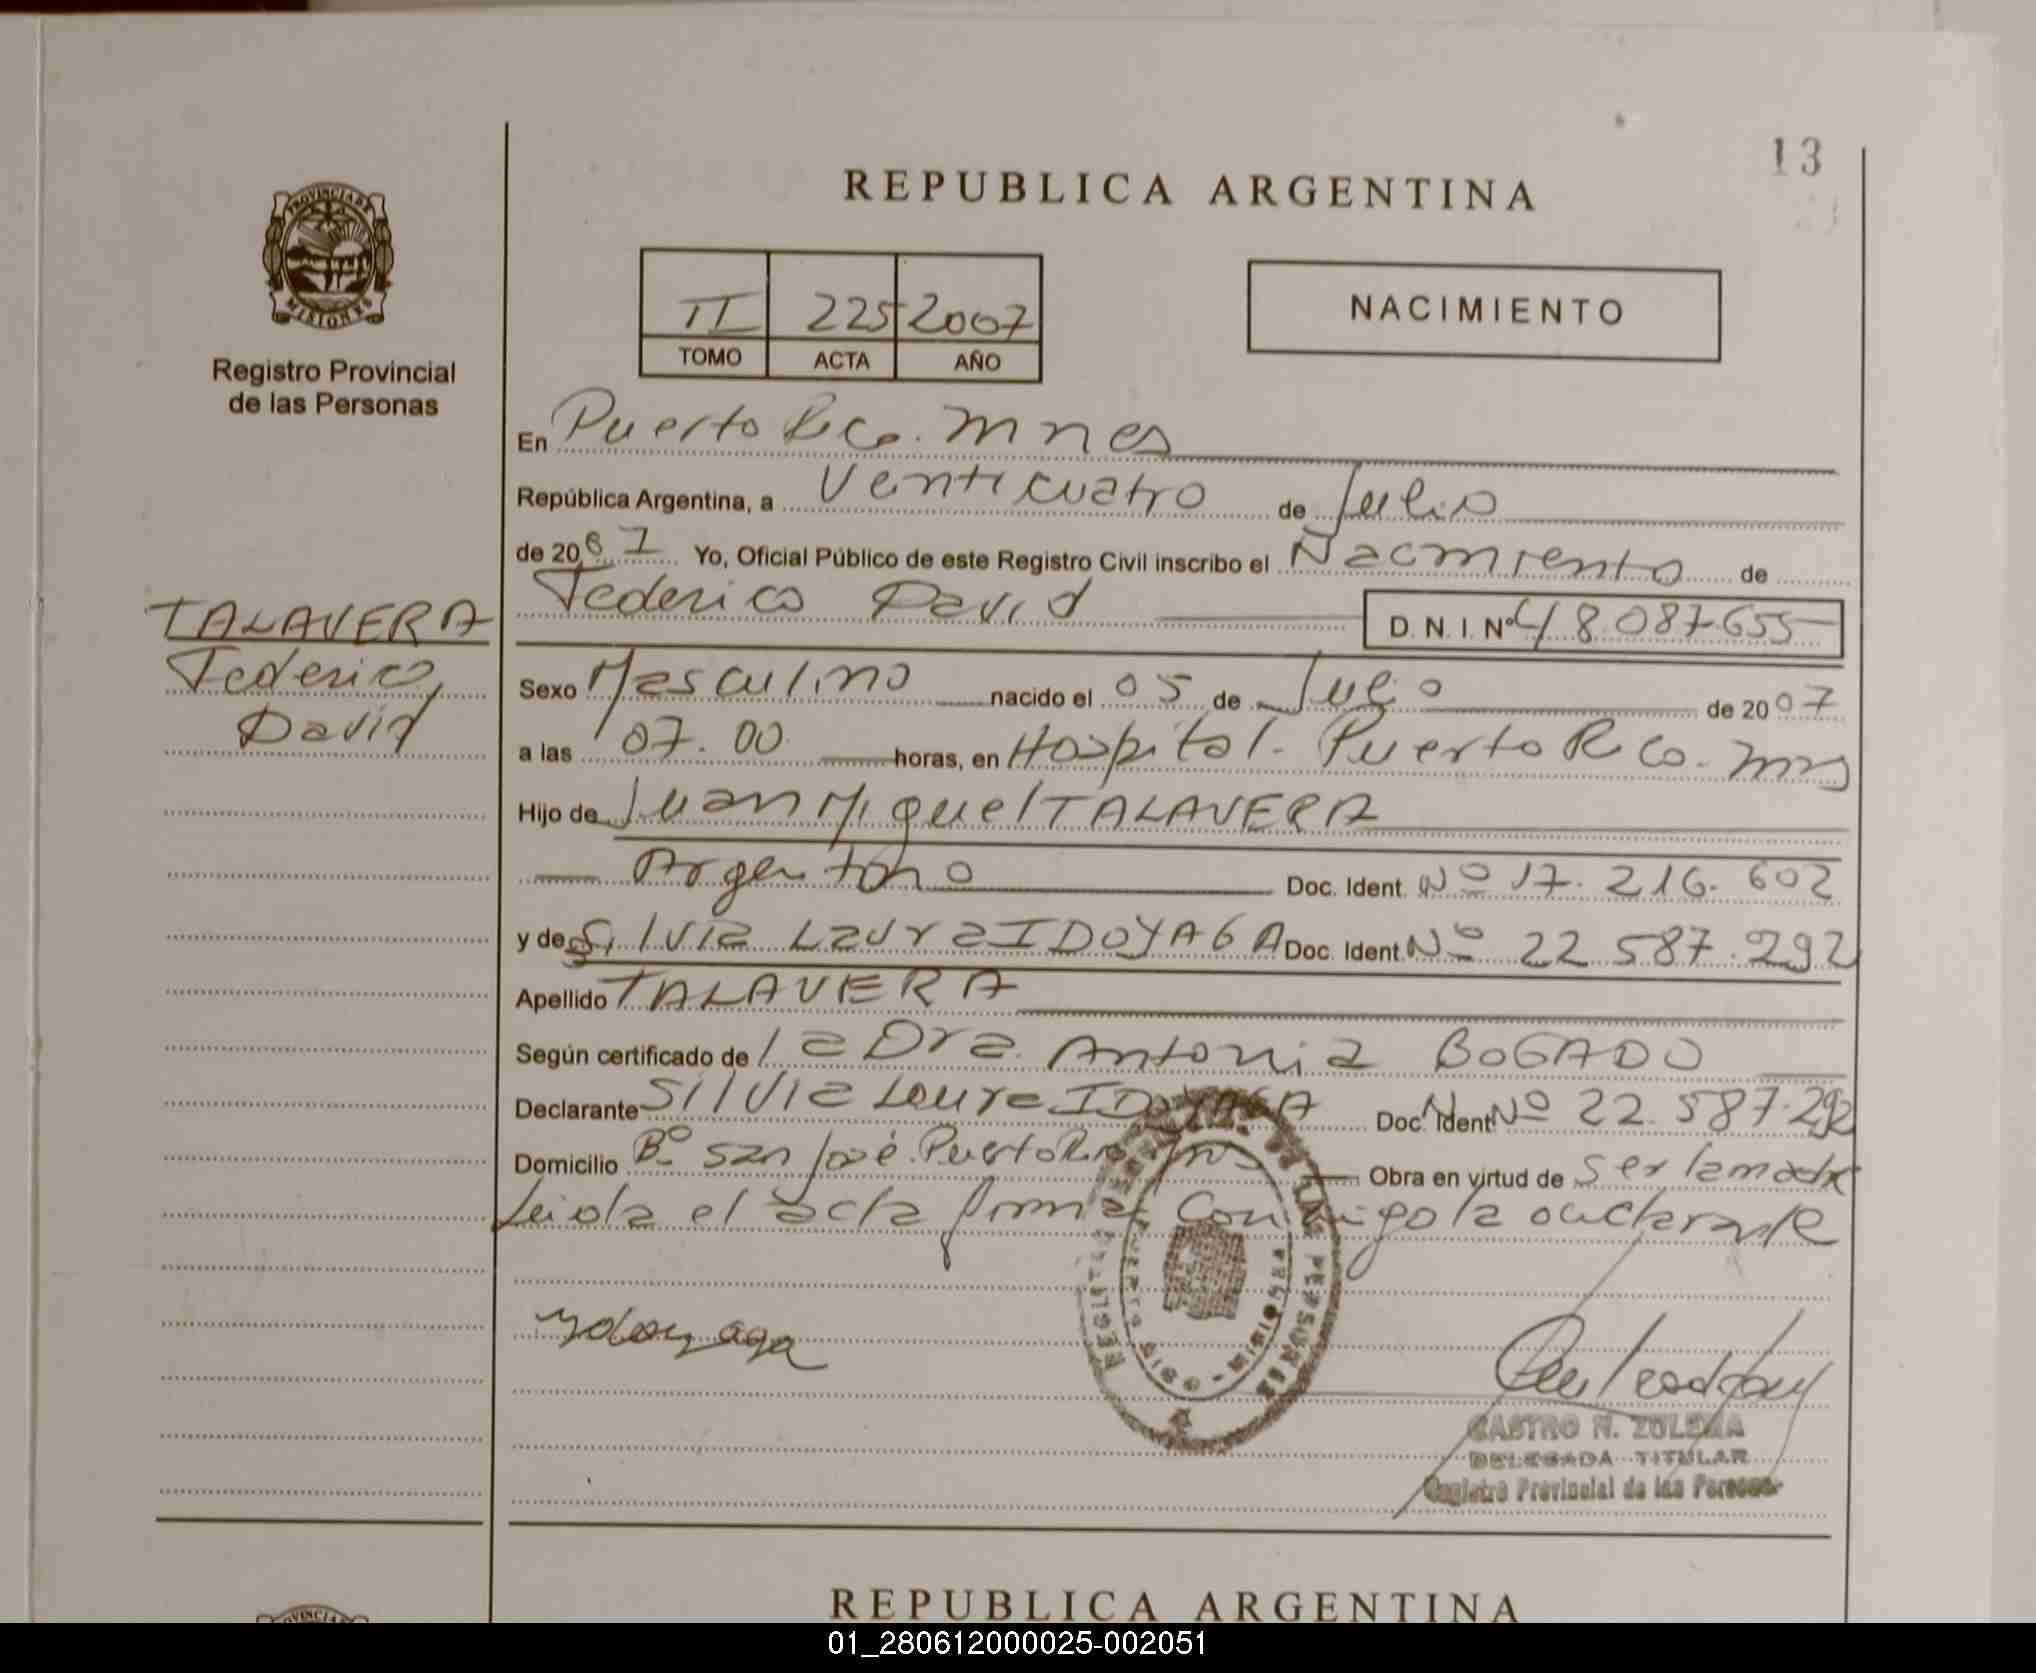 13
REPUBLICA ARGENTINA
PROVINCIA DE
MISIONES
Registro Provincial
de las Personas
II 225 2007
TOMO ACTA AÑO
NACIMIENTO
En Puerto Rico. Mnes
República Argentina, a Venticuatro de Julio
de 2007 Yo, Oficial Público de este Registro Civil inscribo el Nacimiento de
Federico David D. N. I. Nº 48.087.655
TALAVERA
Federico
David
Sexo Masculino nacido el 05 de Julio de 2007
a las 07.00 horas, en Hospital. Puerto Rico. Mns
Hijo de Juan Miguel TALAVERA
Argentino Doc. Ident. Nº 17.216.602
y de Silvia Laura IDOYAGA Doc. Ident. Nº 22.587.292
Apellido TALAVERA
Según certificado de la Dra. Antonia BOGADO
Declarante Silvia Laura IDOYAGA Doc. Ident Nº 22.587.292
Domicilio Bº San José. Puerto Rico Obra en virtud de ser la madre
Leida el acta firma conmigo la declarante
Ydoyaga
CASTRO N. ZULEMA
DELEGADA TITULAR
Registro Provincial de las Personas
REPUBLICA ARGENTINA
01_280612000025-002051